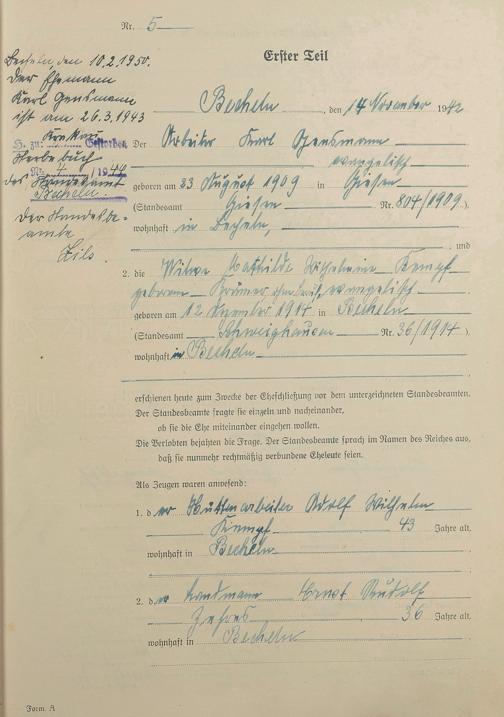 Nr. 5
Becheln, den 10.2.1950.
Der Ehemann
Karl Gensmann
ist am 26.3.1943
zu: Krakau Gestorben
Sterbebuch
Nr. 4 / 1944
des Standesamt
Becheln.
Der Standesbe-
amte
Erster Teil
Becheln, den 14 November 1942
Der Arbeiter Karl Gensmann
evangelisch
geboren am 23 August 1909 in Giesen
(Standesamt Giesen Nr. 804/1909).
wohnhaft in Becheln,
, und
2. die Witwe Mathilde Wilhelmine Kempf
geborene evangelisch
geboren am 12 November 1914 in Becheln
(Standesamt Schweighausen Nr. 36/1914).
wohnhaft in Becheln
erschienen heute zum Zwecke der Eheschließung vor dem unterzeichneten Standesbeamten.
Der Standesbeamte fragte sie einzeln und nacheinander,
ob sie die Ehe miteinander eingehen wollen.
Die Verlobten bejahten die Frage. Der Standesbeamte sprach im Namen des Reiches aus,
daß sie nunmehr rechtmäßig verbundene Eheleute seien.
Als Zeugen waren anwesend:
1. der Hüttenarbeiter Adolf Wilhelm
Kempf 43 Jahre alt,
wohnhaft in Becheln
2. der Landmann Ernst Rudolf
36 Jahre alt,
wohnhaft in Becheln
Form. A